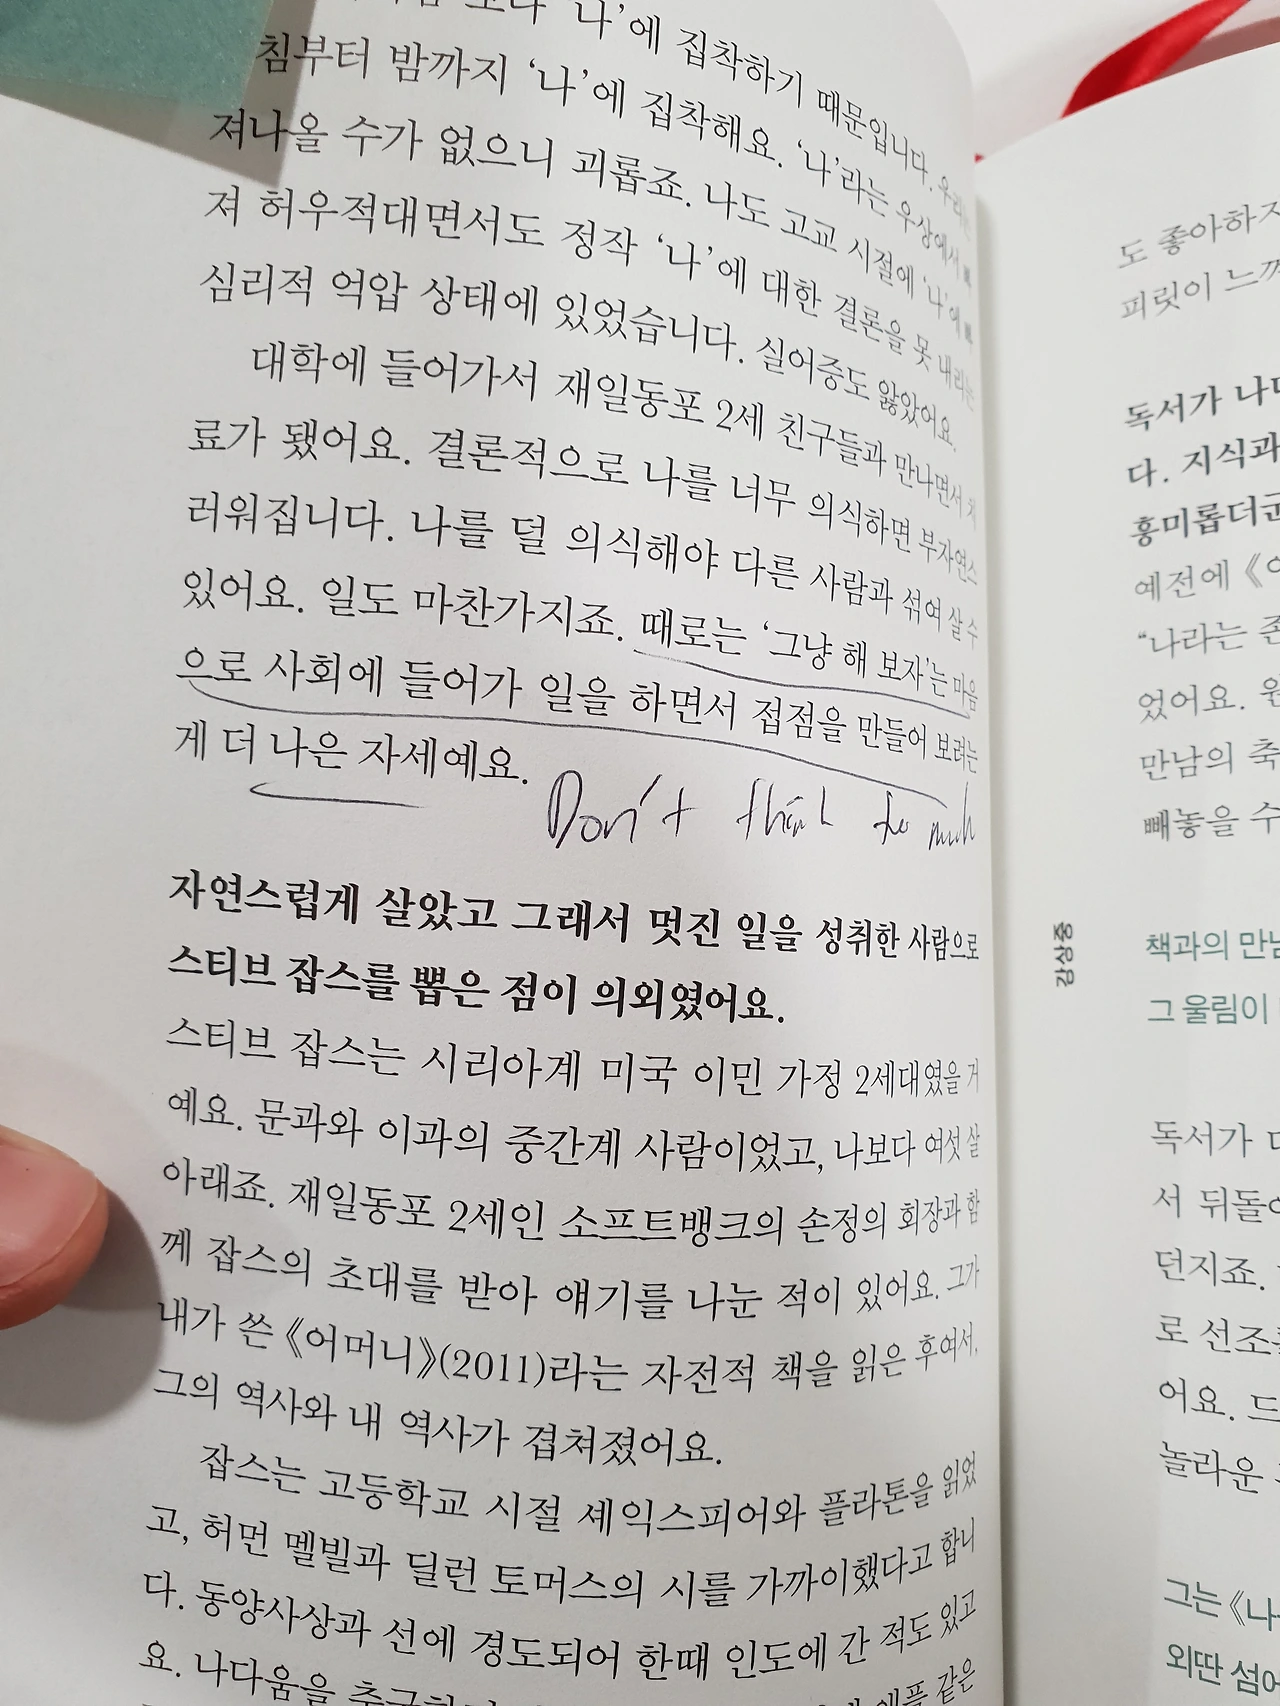 '나'에 집착하기 때문입니다. 우리는
침부터 밤까지 '나'에 집착해요. '나'라는 우상에서
져나올 수가 없으니 괴롭죠. 나도 고교 시절에 '나'에
져 허우적대면서도 정작 '나'에 대한 결론을 못 내리는
심리적 억압 상태에 있었습니다. 실어증도 앓았어요.
대학에 들어가서 재일동포 2세 친구들과 만나면서 치
료가 됐어요. 결론적으로 나를 너무 의식하면 부자연스
러워집니다. 나를 덜 의식해야 다른 사람과 섞여 살 수
있어요. 일도 마찬가지죠. 때로는 '그냥 해 보자'는 마음
으로 사회에 들어가 일을 하면서 접점을 만들어 보려는
게 더 나은 자세예요.
Don't think too much
자연스럽게 살았고 그래서 멋진 일을 성취한 사람으로
스티브 잡스를 뽑은 점이 의외였어요.
스티브 잡스는 시리아계 미국 이민 가정 2세대였을 거
예요. 문과와 이과의 중간계 사람이었고, 나보다 여섯 살
아래죠. 재일동포 2세인 소프트뱅크의 손정의 회장과 함
께 잡스의 초대를 받아 얘기를 나눈 적이 있어요. 그가
내가 쓴 《어머니》(2011)라는 자전적 책을 읽은 후여서,
그의 역사와 내 역사가 겹쳐졌어요.
잡스는 고등학교 시절 셰익스피어와 플라톤을 읽었
고, 허먼 멜빌과 딜런 토머스의 시를 가까이했다고 합니
다. 동양사상과 선에 경도되어 한때 인도에 간 적도 있고
요. 나다움을 애플 같은
강상중
도 좋아하지
피릿이 느껴
독서가 나
다. 지식과
흥미롭더군
예전에 《어
"나라는 존
었어요. 원
만남의 축
빼놓을 수
책과의 만남
그 울림이
독서가
서 뒤돌아
던지죠.
로 선조
어요. 드
놀라운
그는 《나
외딴 섬에